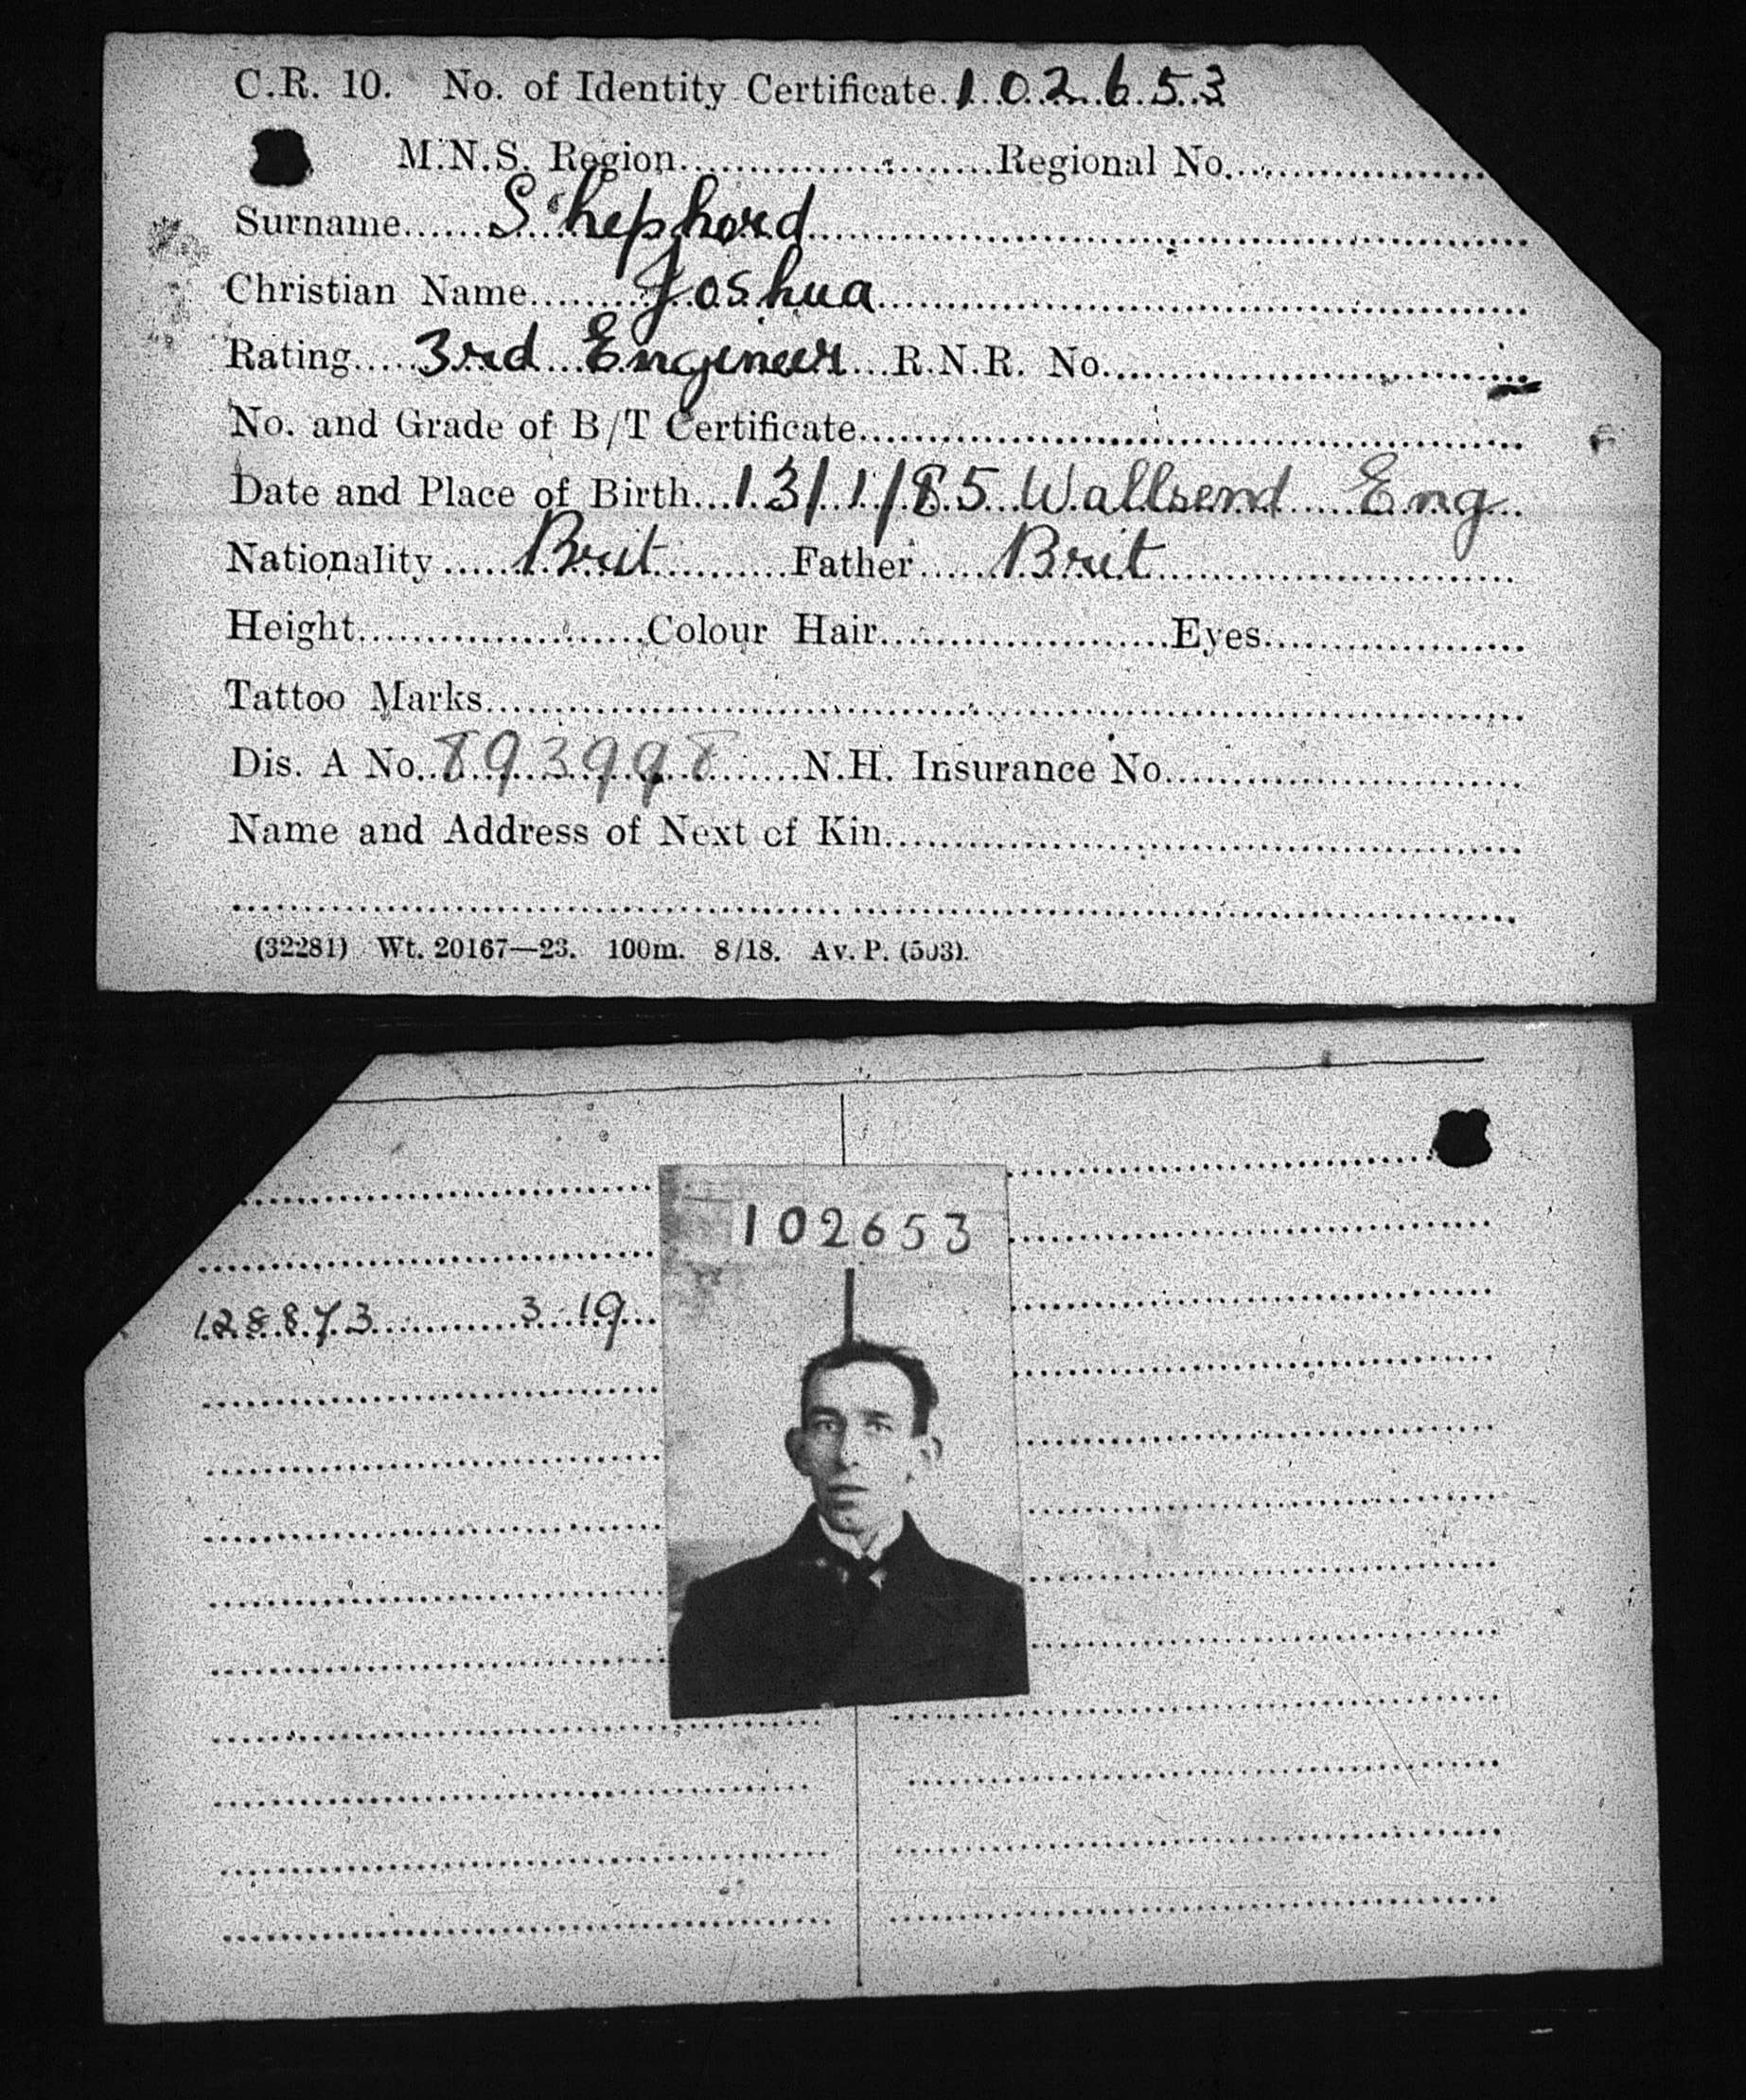 C.R. 10. No. of Identity Certificate 102653
M.N.S. Region Regional No.
Surname Shepherd
Christian Name Joshua
Rating 3rd Engineer R.N.R. No.
No. and Grade of B/T Certificate
Date and Place of Birth 13/1/85 Wallsend Eng
Nationality Brit Father Brit
Height Colour Hair Eyes
Tattoo Marks
Dis. A No. 893998 N.H. Insurance No.
Name and Address of Next of Kin
(32281) Wt. 20167—23. 100m. 8/18. Av. P. (503).
102653
128873 3 19